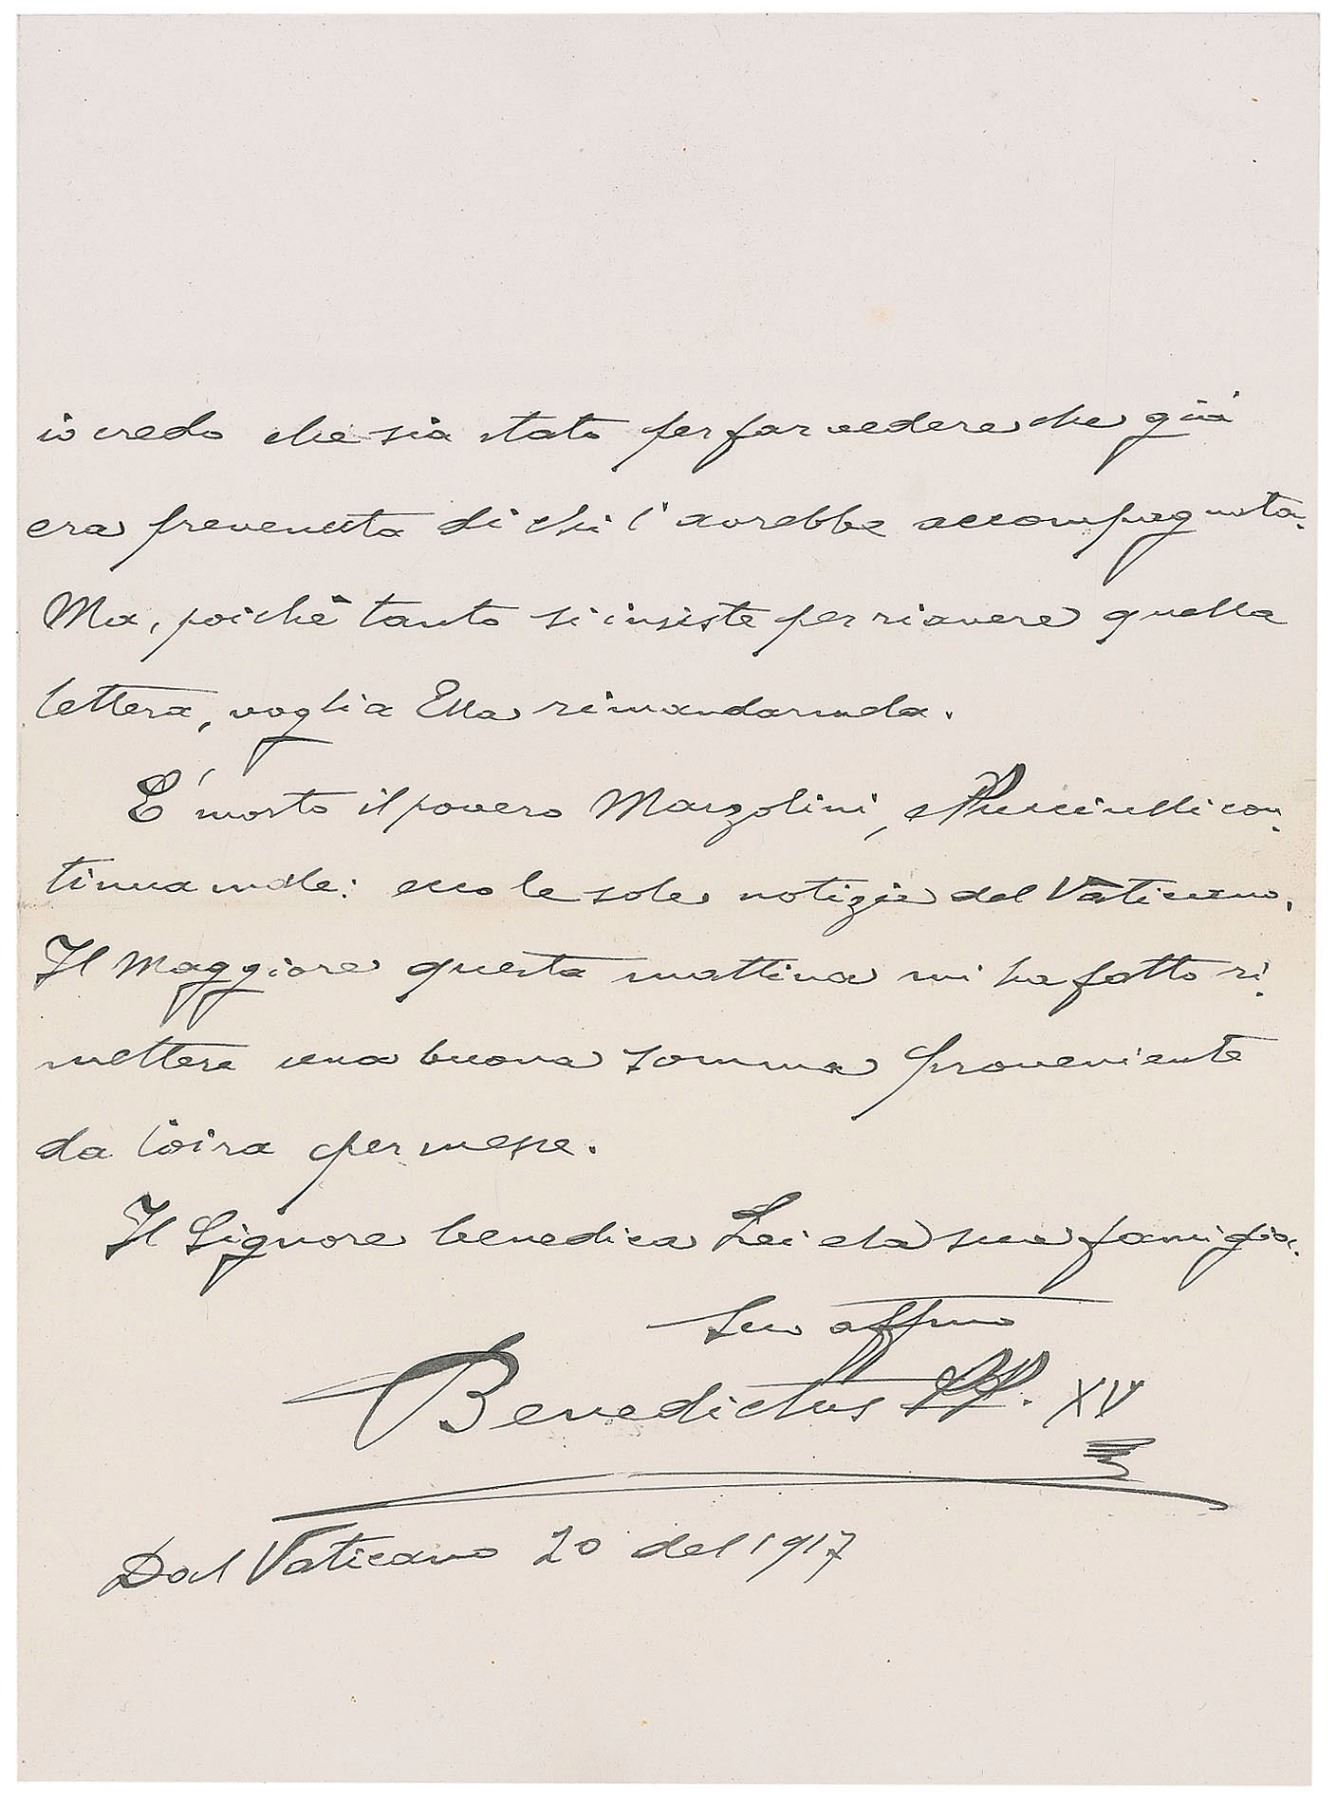 io credo che sia stato per far vedere che già
era prevenuta di chi l'avrebbe accompagnata.
Ma, poichè tanto si insiste per riavere quella
lettera, voglia Ella rimandarmela.
E' morto il povero Marzolini, e Puccinelli con-
tinua male: ecco le sole notizie del Vaticano.
Il Maggiore questa mattina mi ha fatto ri-
mettere una buona somma proveniente
da per messe.
Il Signore benedica Lei e la sua famiglia.
Suo affmo
Benedictus PP. XV
Dal Vaticano 20 del 1917